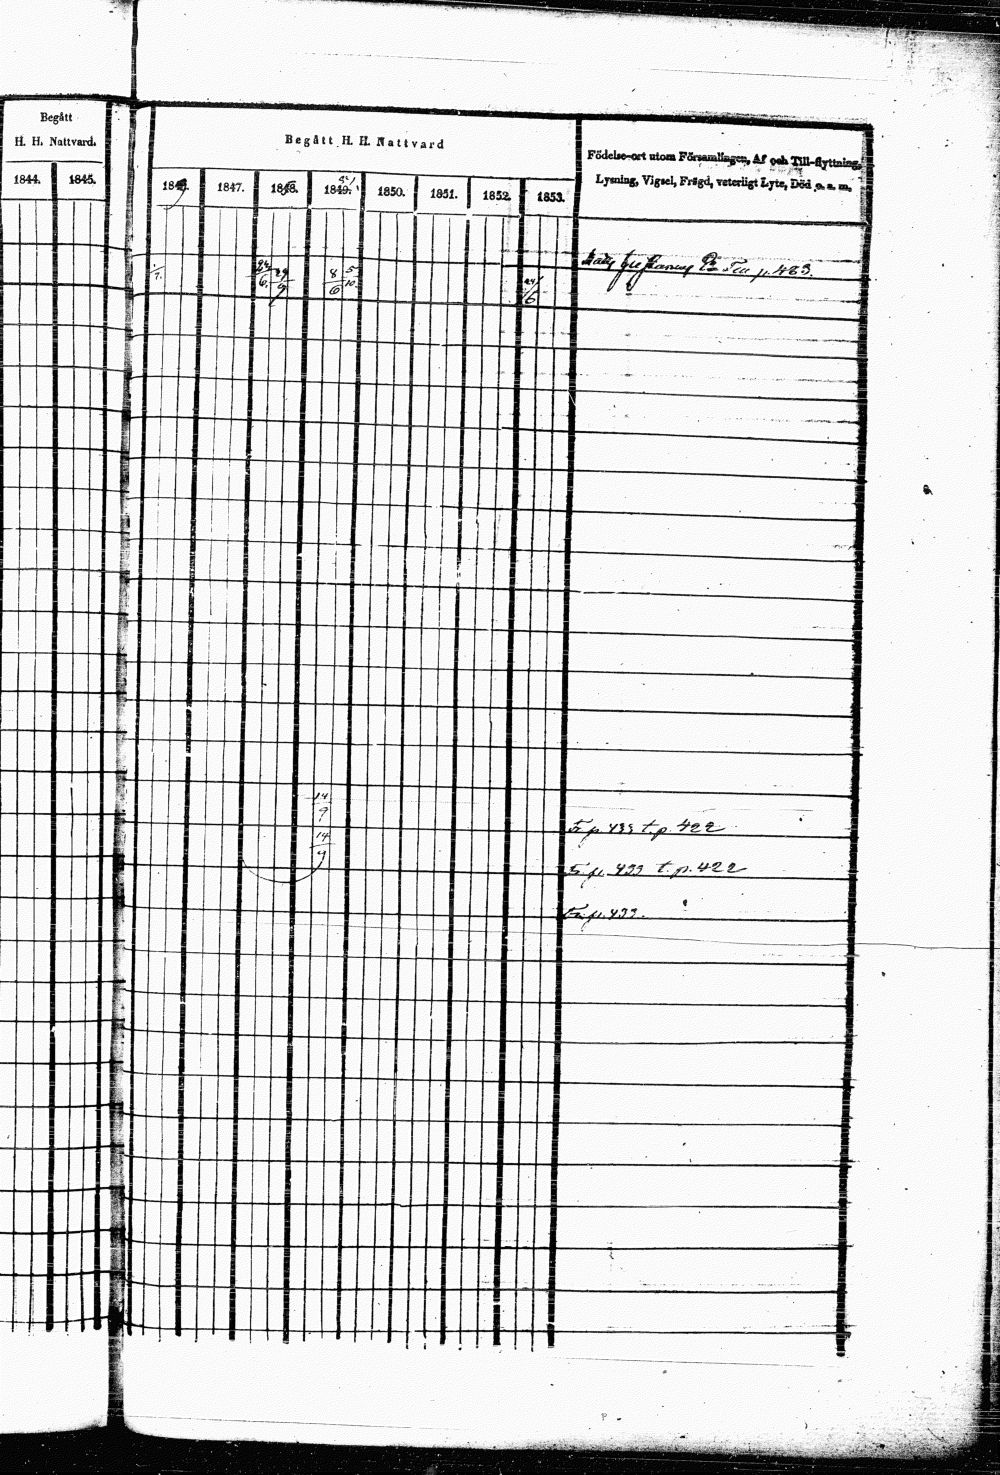 Begått
H. H. Nattvard.
1844. 1845.
Begått H. H. Nattvard
1846. 1847. 1848. 1849. 1850. 1851. 1852. 1853.
Födelse-ort utom Församlingen, Af och Till-flyttning,
Lysning, Vigsel, Frägd, veterligt Lyte, Död o. s. m.
p. 483.
24/6 29/9 8/6 5/10
24/6
14/9
Fr p. 433 t. p. 422
14/9
Fr p. 433 t. p. 422
Fr p. 433.